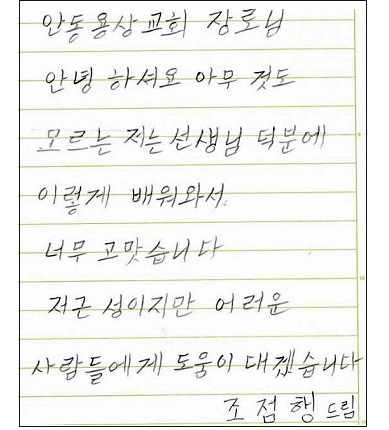 안동용상교회 장로님
안녕 하셔오 아무 것도
모르는 저는 선생님 덕분에
이렇게 배워와서
너무 고맛습니다
저근 성이지만 어려운
사람들에게 도움이 대겠습니다
조점행 드림